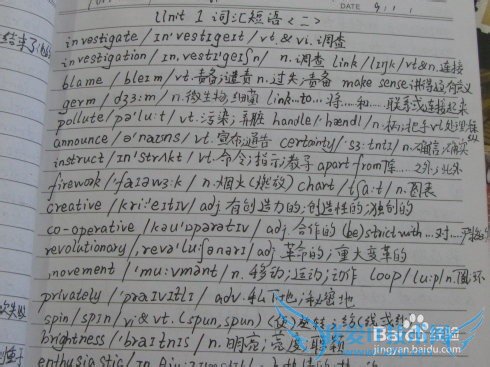 Unit 1 词汇短语(二)
DATE
investigate /ɪn'vestɪgeɪt/ vt.&vi.调查
investigation /ɪn,vestɪ'geɪʃn/ n.调查 link /lɪŋk/ vt&n.连接
blame /bleɪm/ vt.责备;谴责 n.过失;责备 make sense 讲得通;有意义
germ /dʒɜ:m/ n.微生物;细菌 link...to... 将...和...联系或连接起来
pollute /pə'lu:t/ vt.污染;弄脏 handle /hændl/ n.柄;把手 vt处理
announce /ə'naʊns/ vt.宣布;通告 certainty /'sɜ:tntɪ/ n.确信;确实
instruct /ɪn'strʌkt/ vt.命令;指示;教导 apart from 除...之外;此外
firework /'faɪəwɜ:k/ n.烟火(燃放) chart /tʃɑ:t/ n.图表
creative /kri:'eɪtɪv/ adj 有创造力的;创造性的;独创的
co-operative /kəu'ɒpərətɪv/ adj 合作的 (be)strict with...对...严格的
revolutionary /,revə'lu:ʃənərɪ/ adj 革命的;重大变革的
movement /'mu:vmənt/ n.移动;运动;动作 loop /lu:p/ n.圈;环
privately /'praɪvɪtlɪ/ adv.私下地;秘密地
spin /spɪn/ vi&vt.(spun,spun)(使)
brightness /'braɪtnɪs/ n.明亮;亮度;聪颖
enthusiastic
Bai 百度经验
jingyan.baidu.com